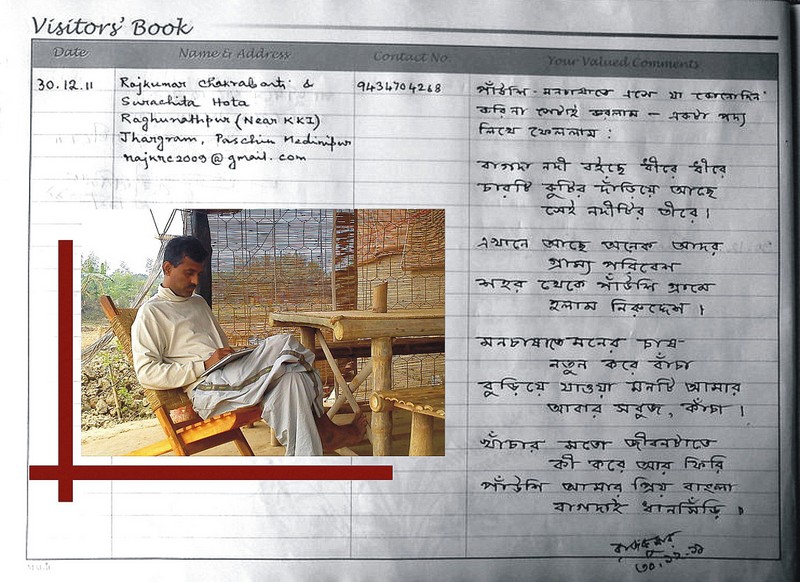 Visitors' Book
Date
Name & Address
Contact No.
Your Valued Comments
30.12.11
Rajkumar Chakrabarti &
Surachita Hota
Raghunathpur (Near KKI)
Jhargram, Paschim Medinipur
rajkrc2009@gmail.com
9434704268
পাঁউশি - মনচাষাতে এসে যা কোনোদিন
করিনা সেটাই করলাম – একটা পদ্য
লিখে ফেললাম :
বাগদা নদী বইছে ধীরে ধীরে
চারটি কুটির দাঁড়িয়ে আছে
সেই নদীটির তীরে।
এখানে আছে অনেক আদর
গ্রাম্য পরিবেশ
শহর থেকে পাঁউশি গ্রামে
হলাম নিরুদ্দেশ।
মনচাষাতে মনের চাষ-
নতুন করে বাঁচা
বুড়িয়ে যাওয়া মনটি আমার
আবার সবুজ, কাঁচা।
খাঁচার মতো জীবনটাতে
কী করে আর ফিরি
পাঁউশি আমার প্রিয় বাংলা
বাগদাই ধানসিঁড়ি।
রাজকুমার
৩০.১২.১১